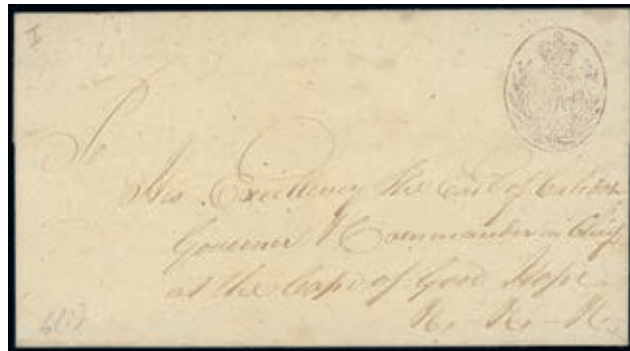 To
His Excellency The Earl of Caledon
Governor & Commander in Chief
at the Cape of Good Hope